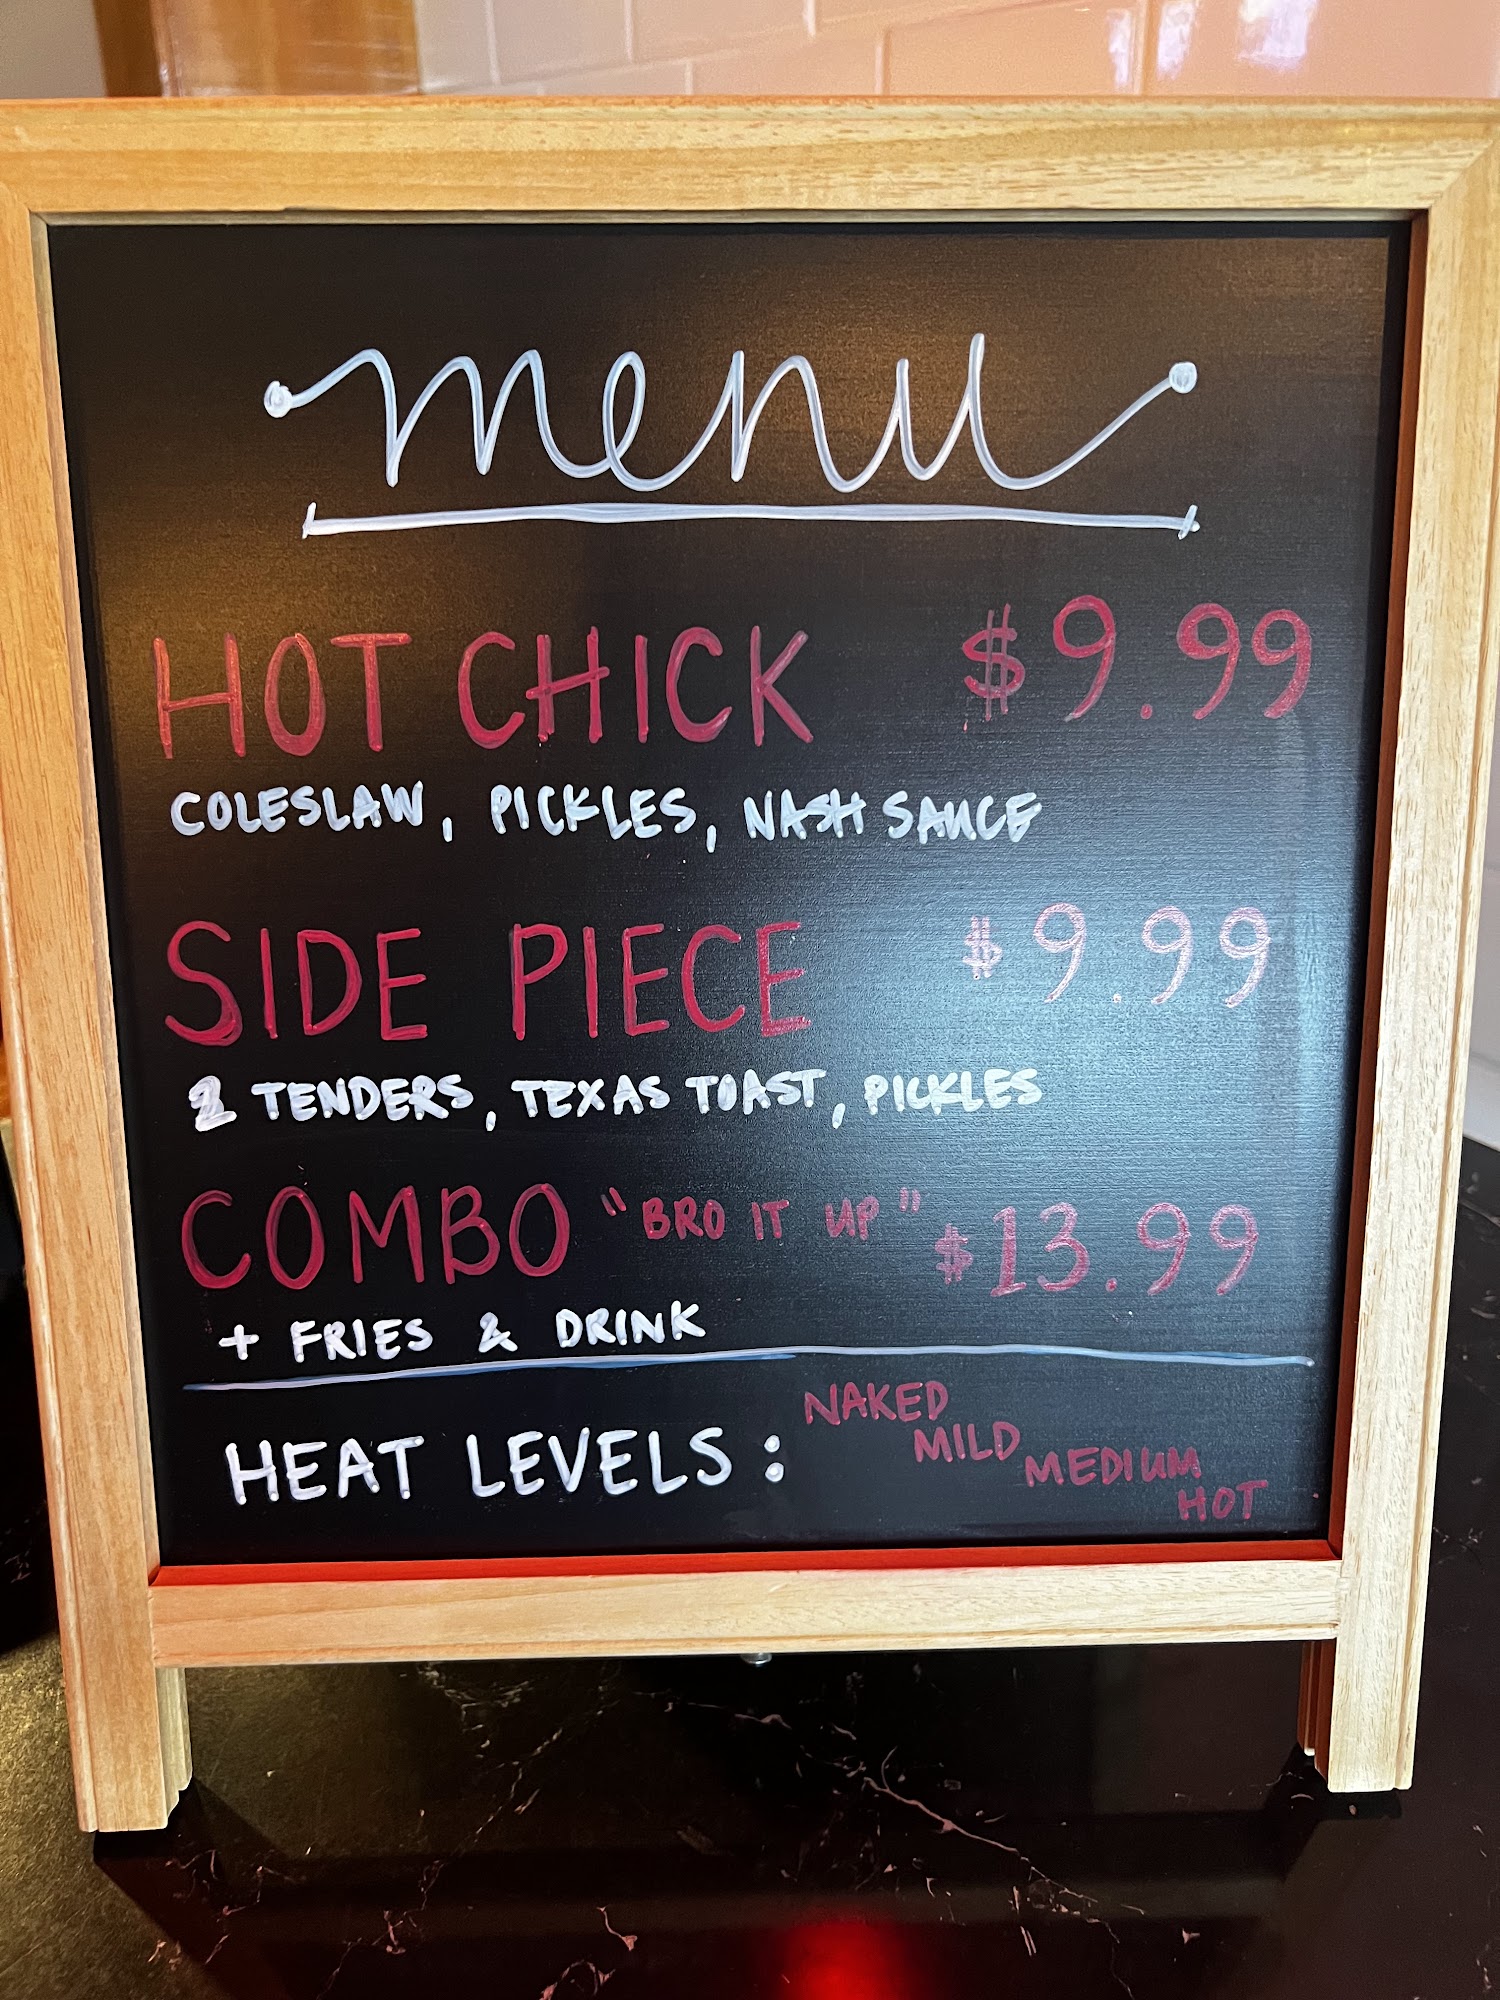 menu
HOT CHICK $9.99
COLESLAW, PICKLES, NASH SAUCE
SIDE PIECE $9.99
2 TENDERS, TEXAS TOAST, PICKLES
COMBO "BRO IT UP" $13.99
+ FRIES & DRINK
HEAT LEVELS: NAKED
MILD
MEDIUM
HOT